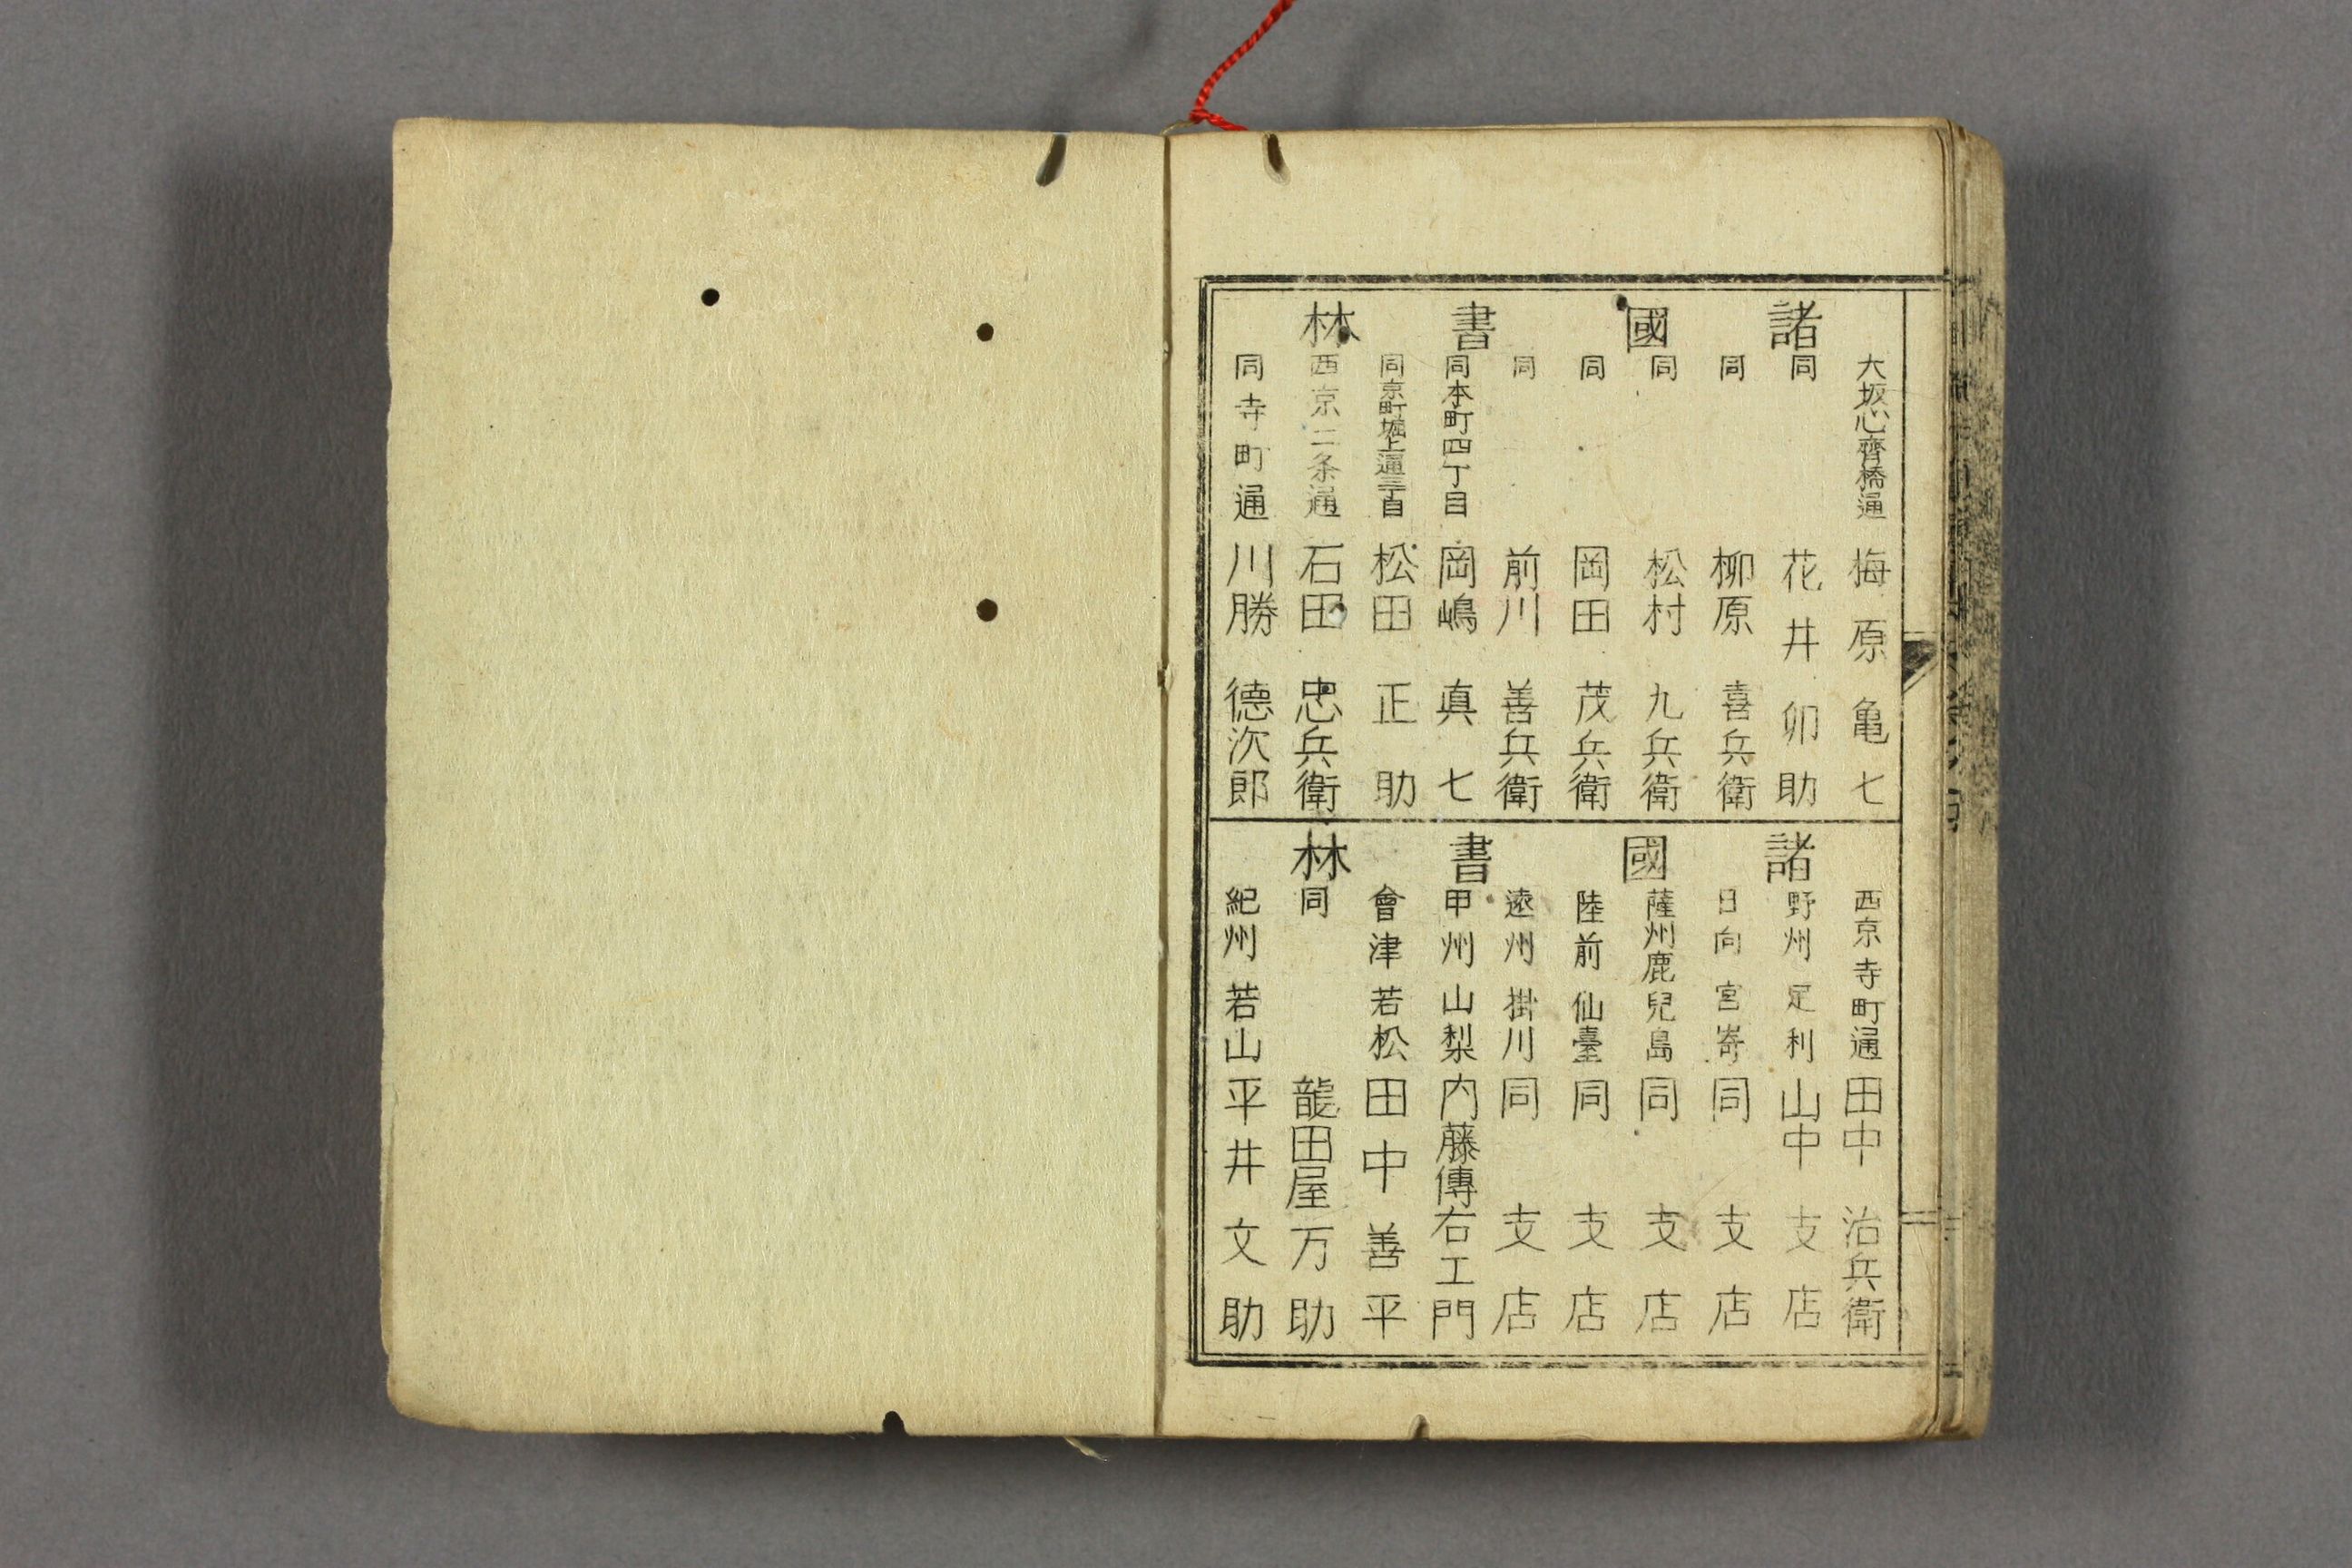 諸國書林
大坂心齊橋通 梅原亀七
同 花井卯助
同 柳原喜兵衛
同 松村九兵衛
同 岡田茂兵衛
同 前川善兵衛
同本町四丁目 岡嶋真七
同京町堀上通三丁目 松田正助
西京二条通 石田忠兵衛
同寺町通 川勝德次郎
諸國書林
西京寺町通 田中治兵衛
野州足利 山中支店
日向宮嵜 同支店
薩州鹿兒島 同支店
陸前仙臺 同支店
遠州掛川 同支店
甲州山梨 内藤傳右工門
會津若松 田中善平
同 龍田屋万助
紀州若山 平井文助